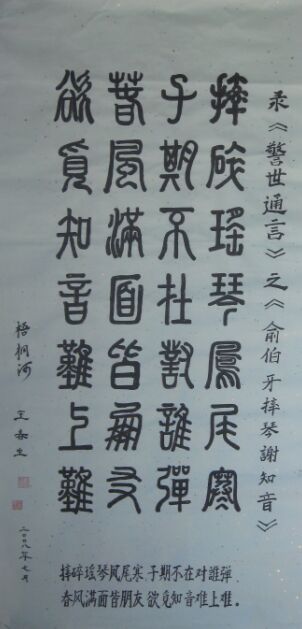 录《警世通言》之《俞伯牙摔琴謝知音》
摔碎瑶琴鳳尾寒
子期不在對誰彈
春風滿面皆朋友
欲覓知音難上難
梧桐河
二〇〇八年七月
摔碎瑶琴凤尾寒 子期不在对誰弹
春风满面皆朋友 欲觅知音难上难。